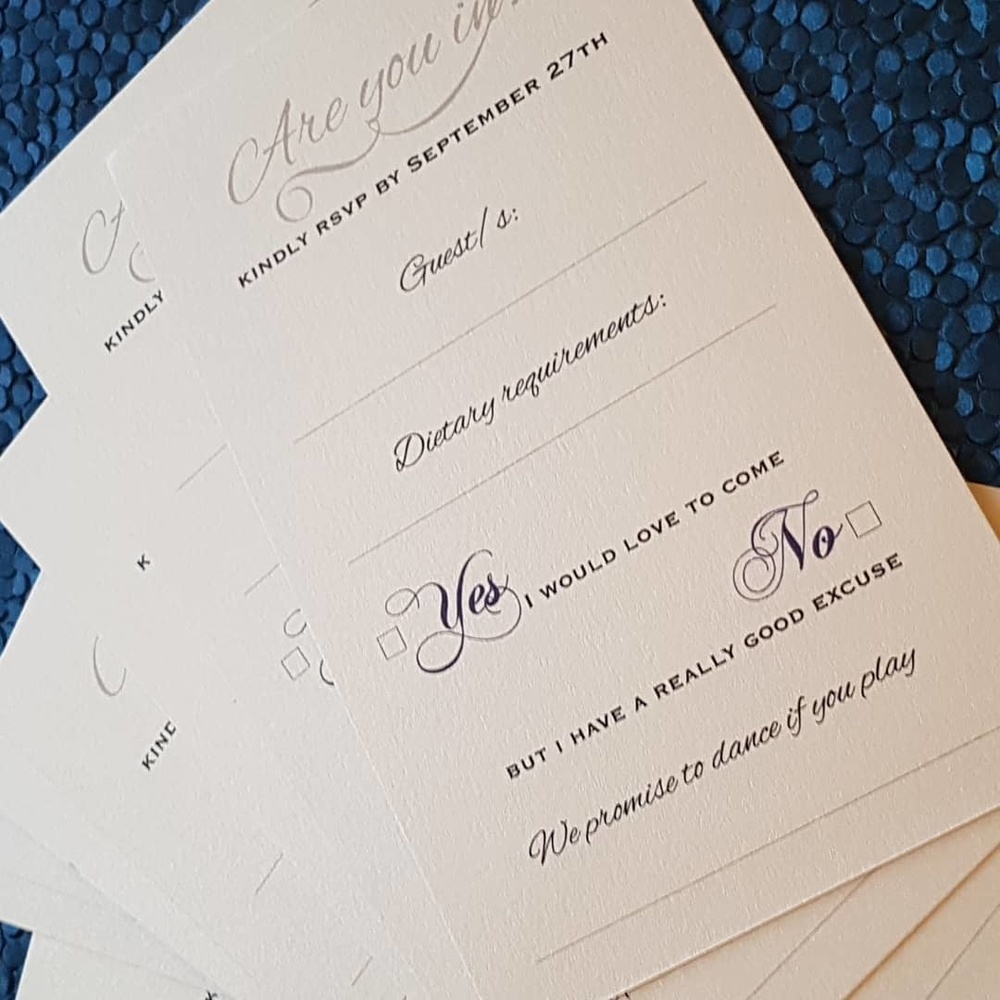 Are you in?
KINDLY RSVP BY SEPTEMBER 27TH
Guest/ s:
Dietary requirements:
Yes I WOULD LOVE TO COME
No
BUT I HAVE A REALLY GOOD EXCUSE
We promise to dance if you play
KINDLY
K
KIND